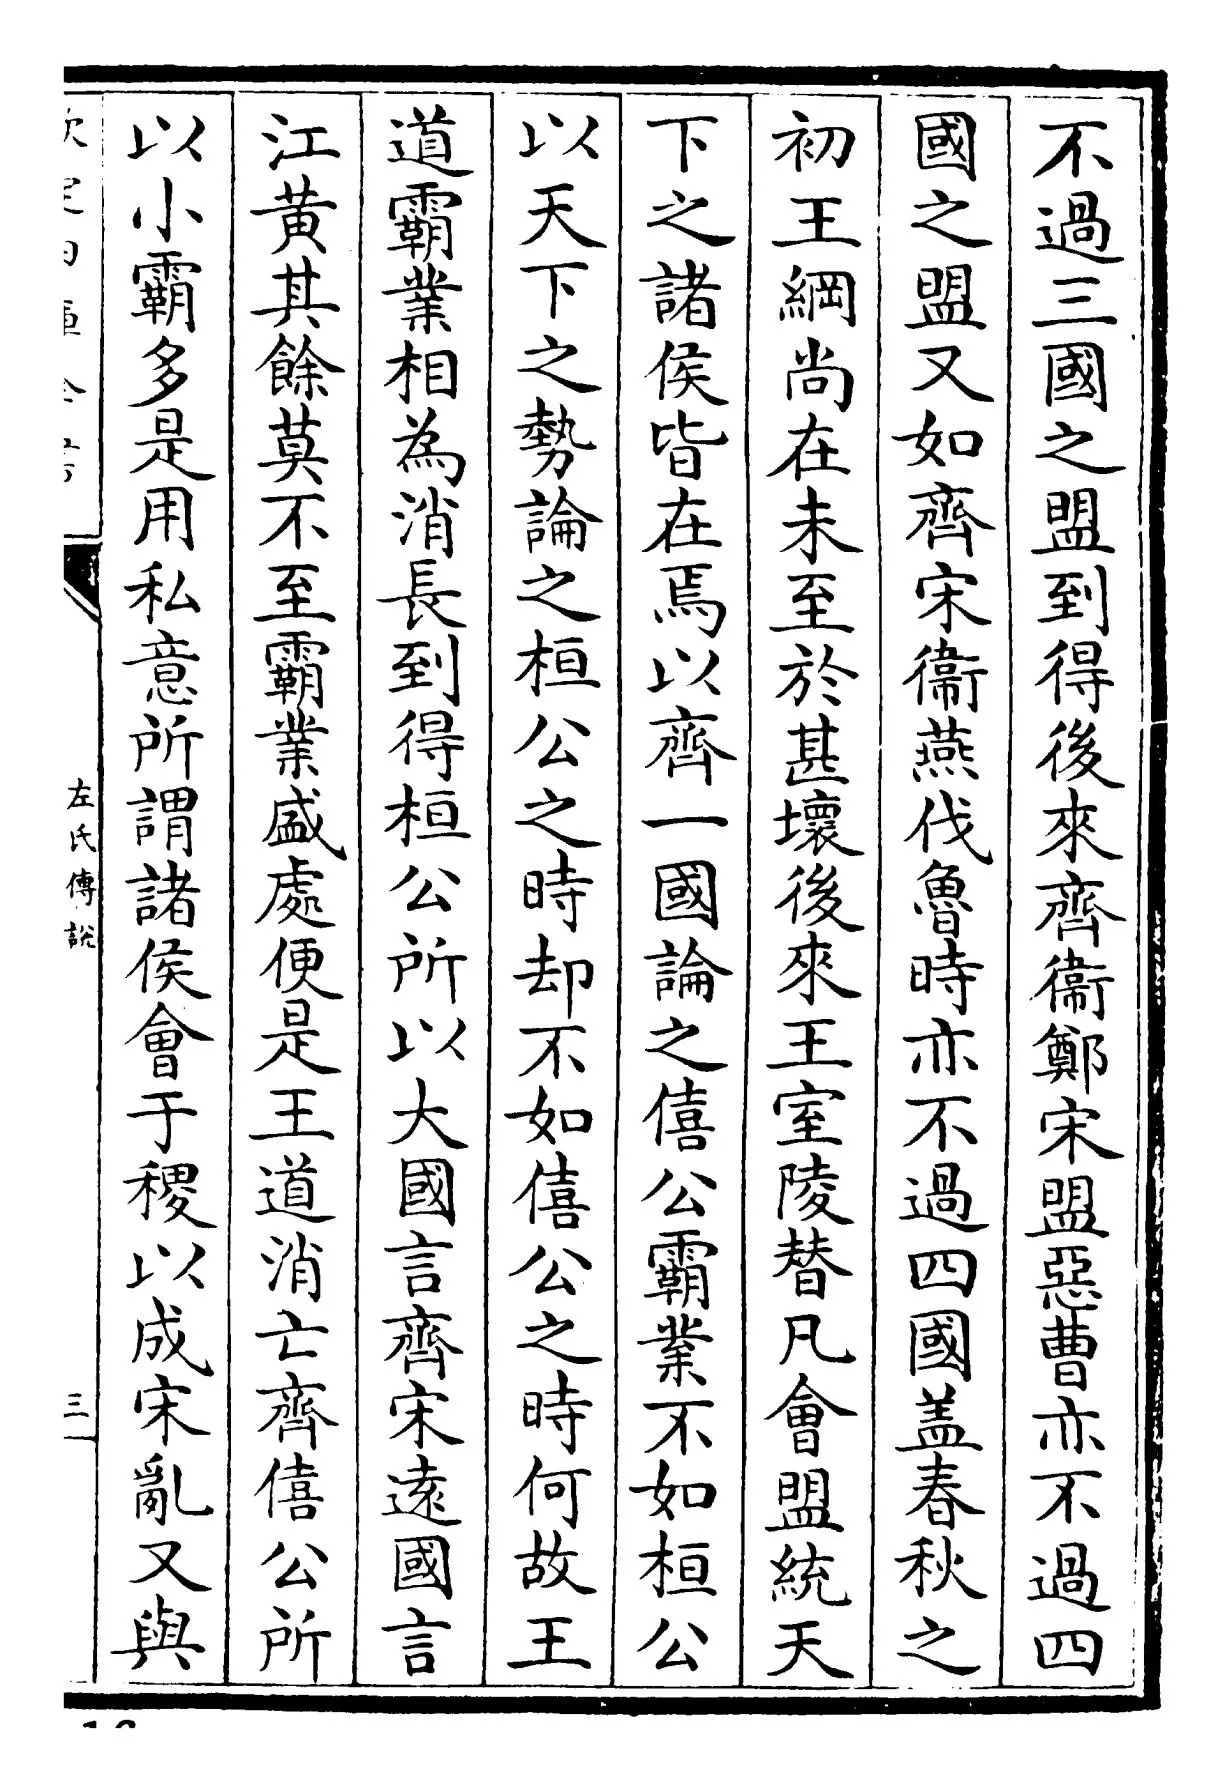 不過三國之盟到得後來齊衞鄭宋盟惡曹亦不過四
國之盟又如齊宋衞燕伐魯時亦不過四國盖春秋之
初王綱尚在未至於甚壞後來王室陵替凡會盟統天
下之諸侯皆在焉以齊一國論之僖公霸業不如桓公
以天下之勢論之桓公之時却不如僖公之時何故王
道霸業相為消長到得桓公所以大國言齊宋遠國言
江黄其餘莫不至霸業盛處便是王道消亡齊僖公所
以小霸多是用私意所謂諸侯會于稷以成宋亂又與
左氏傳說
三